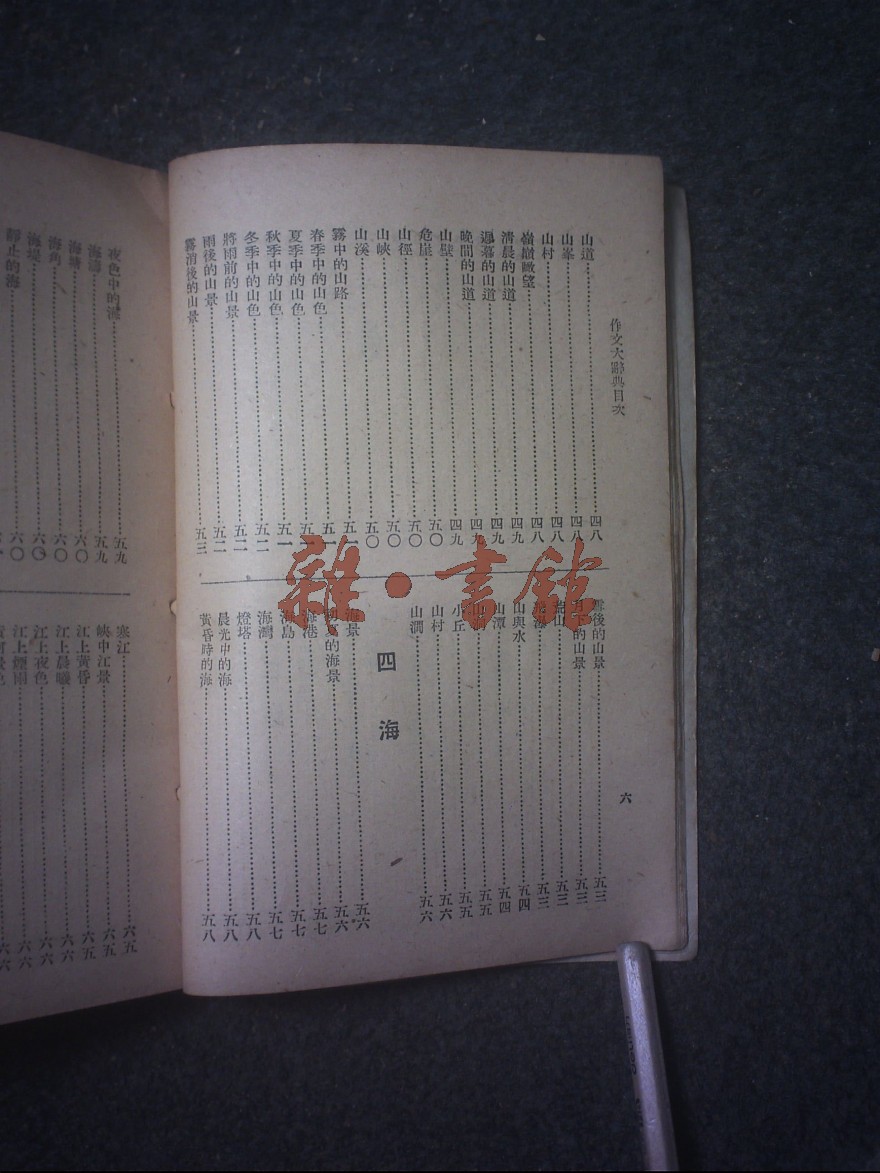 作文大辭典目次
六
山道……四八
山峯……四八
山村……四八
嶺巔瞰望……四八
清晨的山道……四九
遲暮的山道……四九
晚間的山道……四九
山壁……四九
危崖……五〇
山徑……五〇
山峽……五〇
山溪……五〇
霧中的山路……五一
春季中的山色……五一
夏季中的山色……五一
秋季中的山色……五一
冬季中的山色……五二
將雨前的山景……五二
雨後的山景……五二
霧消後的山景……五三
雪後的山景……五三
月下的山景……五三
山……五三
五三
山與水……五四
山潭……五四
山……五五
小丘……五五
山村……五六
山澗……五六
四 海
海景……五六
的海景……五六
海港……五七
海島……五七
海灣……五七
燈塔……五八
晨光中的海……五八
黃昏時的海……五八
夜色中的海……五九
海濤……五九
海塘……六〇
海角……六〇
海堤……六〇
靜止的海……六〇
寒江……六五
峽中江景……六五
江上黃昏……六五
江上晨曦……六六
江上夜色……六六
江上煙雨……六六
雜·書館